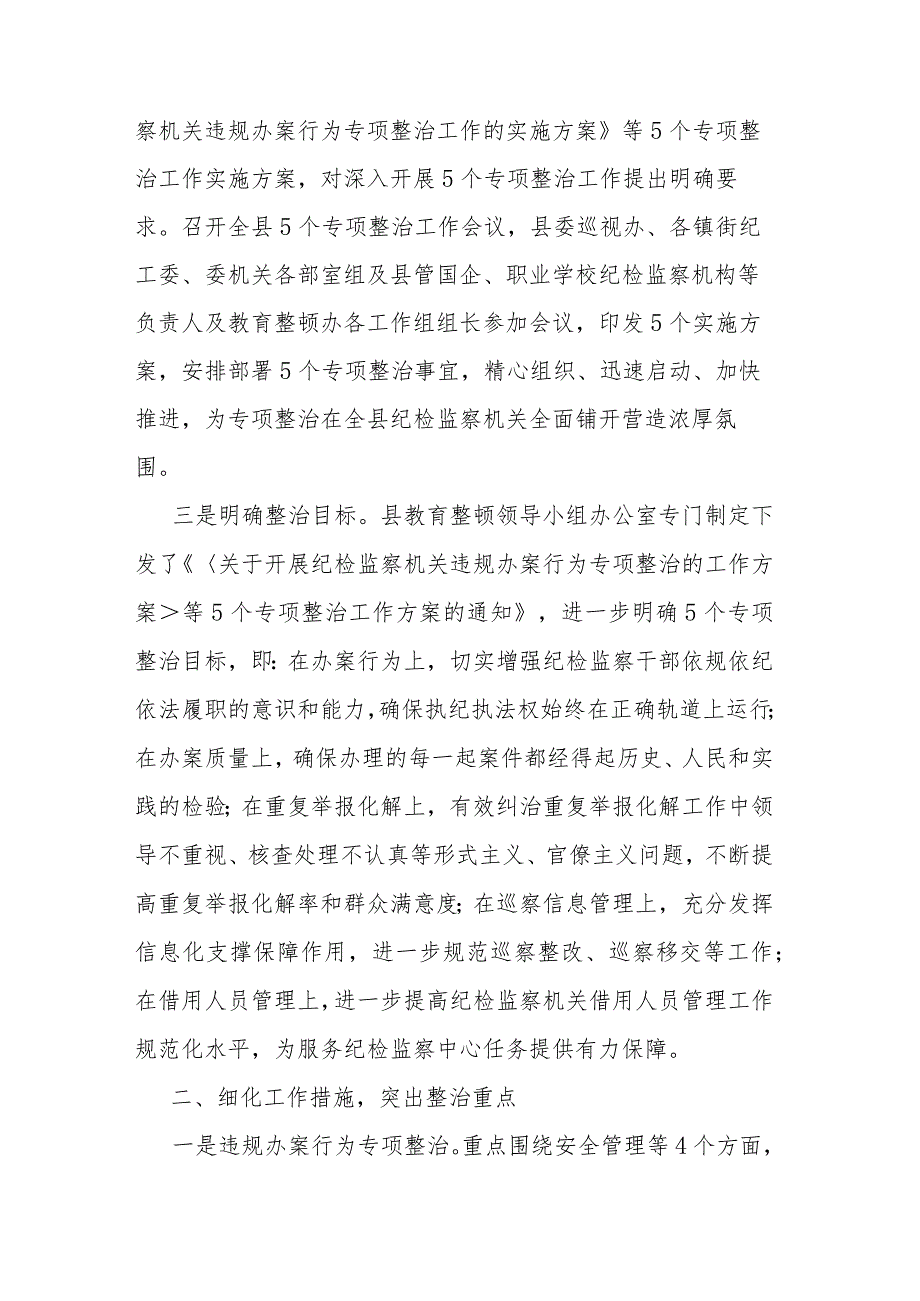 察机关违规办案行为专项整治工作的实施方案》等5个专项整
治工作实施方案，对深入开展5个专项整治工作提出明确要
求。召开全县5个专项整治工作会议，县委巡视办、各镇街纪
工委、委机关各部室组及县管国企、职业学校纪检监察机构等
负责人及教育整顿办各工作组组长参加会议，印发5个实施方
案，安排部署5个专项整治事宜，精心组织、迅速启动、加快
推进，为专项整治在全县纪检监察机关全面铺开营造浓厚氛
围。
三是明确整治目标。县教育整顿领导小组办公室专门制定下
发了《〈关于开展纪检监察机关违规办案行为专项整治的工作方
案＞等5个专项整治工作方案的通知》，进一步明确5个专项
整治目标，即：在办案行为上，切实增强纪检监察干部依规依纪
依法履职的意识和能力，确保执纪执法权始终在正确轨道上运行；
在办案质量上，确保办理的每一起案件都经得起历史、人民和实
践的检验；在重复举报化解上，有效纠治重复举报化解工作中领
导不重视、核查处理不认真等形式主义、官僚主义问题，不断提
高重复举报化解率和群众满意度；在巡察信息管理上，充分发挥
信息化支撑保障作用，进一步规范巡察整改、巡察移交等工作；
在借用人员管理上，进一步提高纪检监察机关借用人员管理工作
规范化水平，为服务纪检监察中心任务提供有力保障。
二、细化工作措施，突出整治重点
一是违规办案行为专项整治。重点围绕安全管理等4个方面，